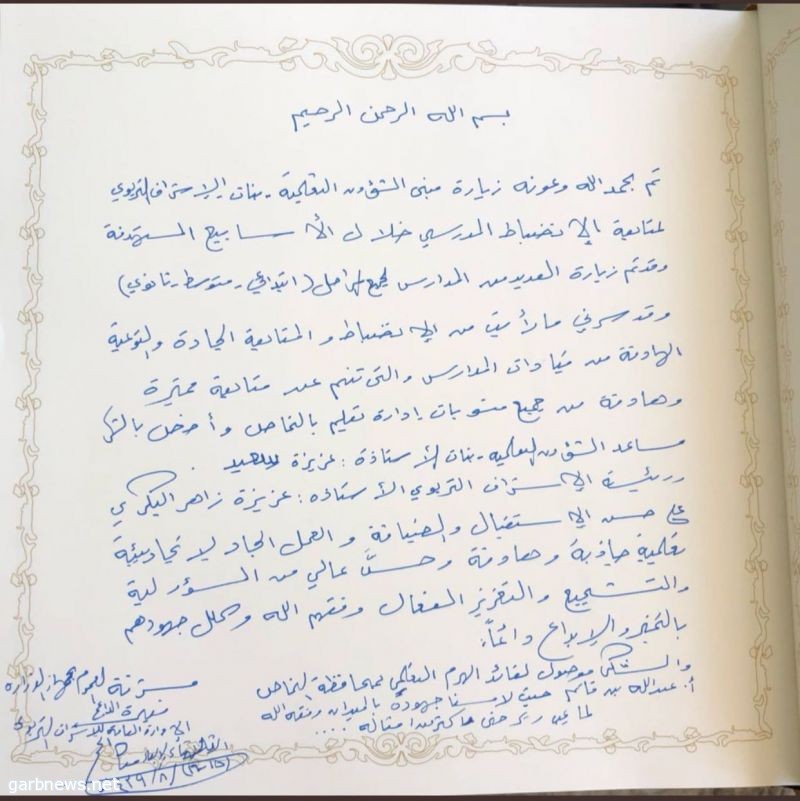 بسم الله الرحمن الرحيم
تم بحمد الله وعونه زيارة مبنى الشؤون التعليمية - بنات الإشراف التربوي
لمتابعة الإنضباط المدرسي خلال الأسابيع المستهدفة
وقد تم زيارة العديد من المدارس لجميع المراحل (ابتدائي - متوسط - ثانوي)
وقد سرني ما رأيت من الإنضباط والمتابعة الجادة والتوعية
الهادفة من قيادات المدارس والتي تنم عن متابعة مميزة
وهادفة من جميع منسوبات إدارة تعليم بالنماص وأخص بالشكر
مساعد الشؤون التعليمية - بنات الأستاذة : عزيزة سعيد .
ورئيسة الإشراف التربوي الأستاذه : عزيزة زاهر البكري
على حسن الإستقبال والضيافة والعمل الجاد لإيجاد بيئة
تعليمية جاذبة وهادفة وحسٌ عالي من المسؤولية
والتشجيع والتعزيز الفعال وفقهم الله وكلل جهودهم
بالتميز والإبداع دائماً.
والشكر موصول لقائد الهرم التعليمي بمحافظة النماص
أ. عبدالله بن قاسم حيث لامسنا جهوده بالميدان وفقه الله
لما يحب ويرضى وأكثر من أمثاله ....
مشرفة عموم بجهاز الوزارة
الإدارة العامة للإشراف التربوي
garbnews.net